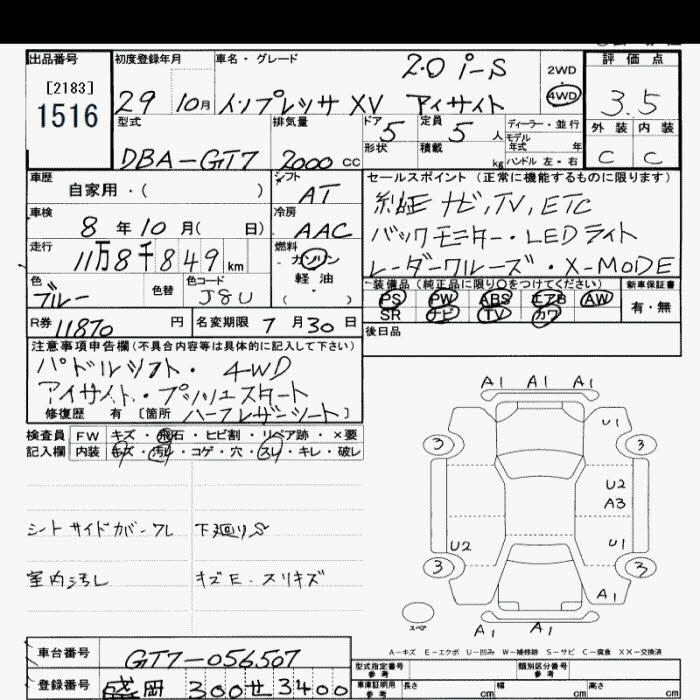 出品番号 初度登録年月 車名・グレード 評価点
[2183]
1516
29 10月 インプレッサ XV 2.0 i-S アイサイト 2WD 4WD 3.5
型式 排気量 ドア 5 定員 5 人 ディーラー・並行 外装 内装
形状 積載 kg モデル年式 年 ハンドル 左・右
DBA-GT7 2000 cc C C
車歴 シフト セールスポイント (正常に機能するものに限ります)
自家用・( ) AT 純正 ナビ, TV, ETC
車検 8 年 10 月( 日) 冷房 AAC バックモニター・LEDライト
走行 11万8千849 km 燃料 ガソリン レーダークルーズ・X-MODE
軽油
( )
色 ブルー 色替 色コード J8U 装備品 (純正品に限り○をつけてください) 新車保証書
PS PW ABS エアB AW 有・無
SR ナビ TV カワ
R券 11870 円 名変期限 7 月 30 日 後日品
注意事項申告欄(不具合内容等は具体的に記入して下さい)
パドルシフト・ 4WD
アイサイト・プッシュスタート
修復歴 有 [箇所 ハーフレザーシート]
検査員 FW キズ・飛石・ヒビ割・リペア跡・×要
記入欄 内装 キズ・汚れ・コゲ・穴・スレ・キレ・破レ
A1 A1 A1
U1
3 3
U2
A3
U2 U1
3 3
A1
スペア A1 A1
シートサイドカバーワレ 下廻りS
室内汚れ キズE・スリキズ
A-キズ E-エクボ U-凹み W-補修跡 S-サビ C-腐食 XX-交換済
車台番号 GT7-056507
登録番号 盛岡 300 せ 3400
型式指定番号 類別区分番号
参考 参考
車庫証明用 長さ cm 幅 cm 高さ cm
参考